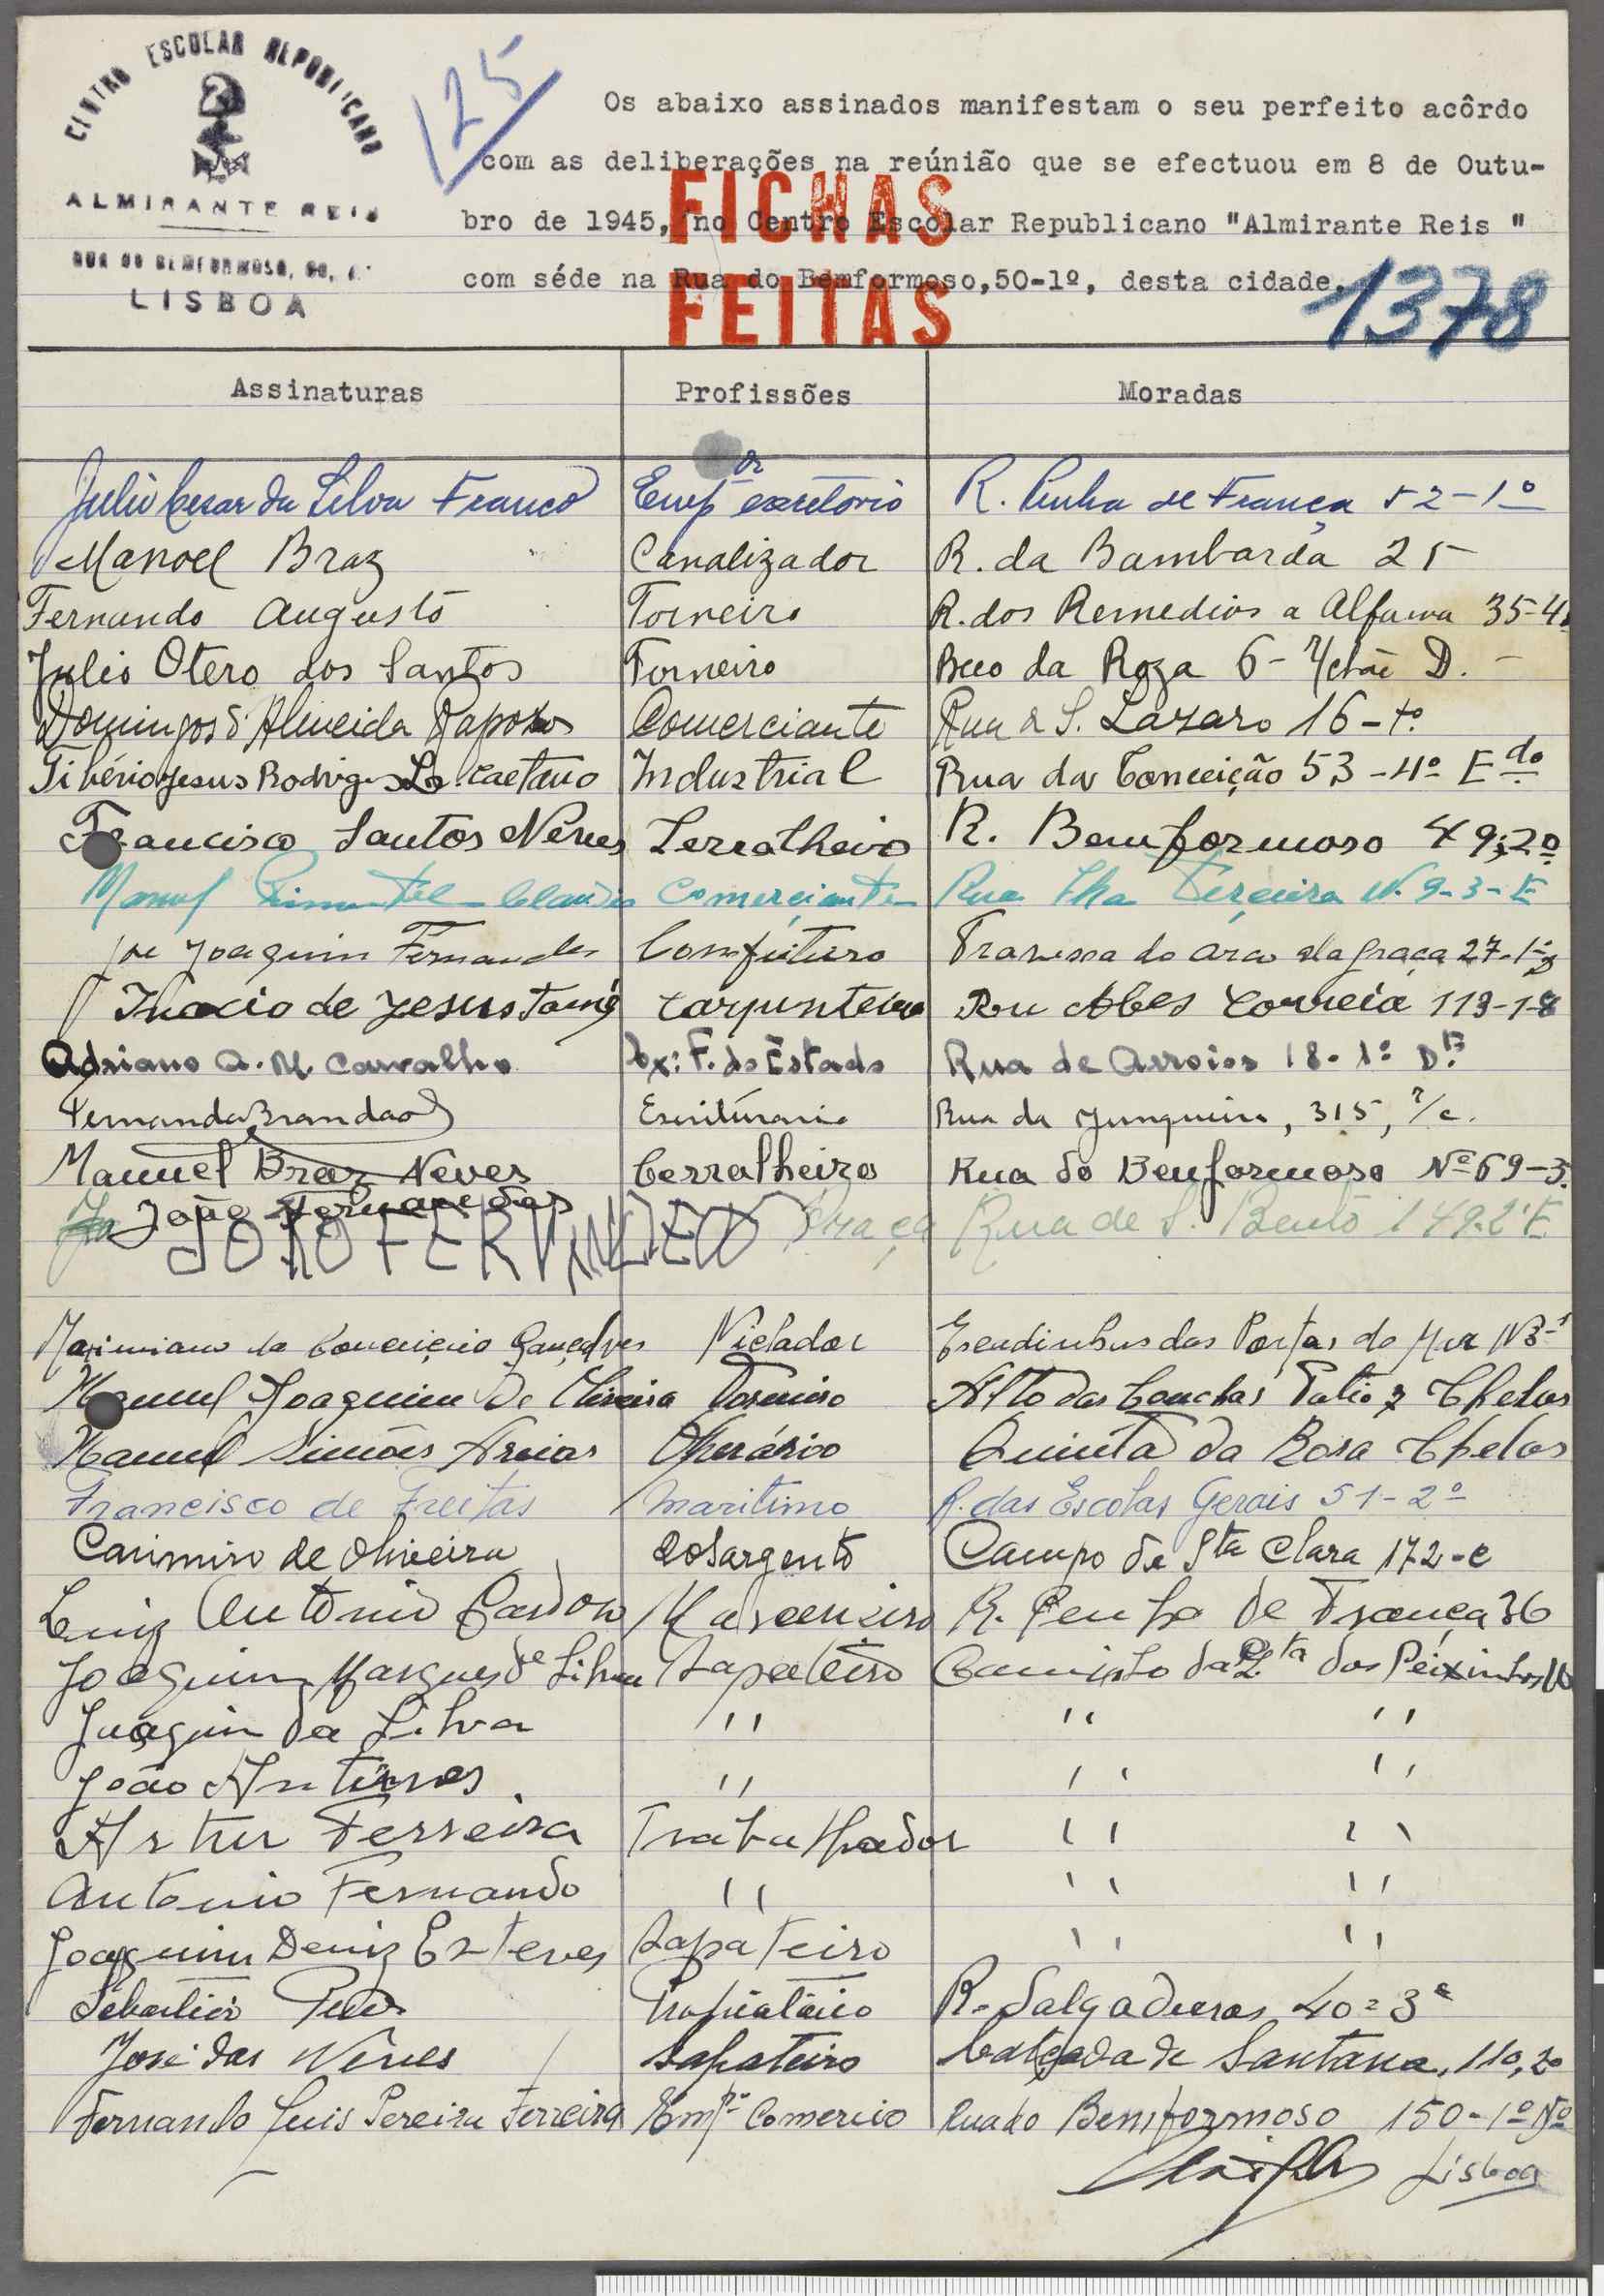 CENTRO ESCOLAR REPUBLICANO
ALMIRANTE REIS
RUA DO BEMFORMOSO, 50, 1º
LISBOA
125
Os abaixo assinados manifestam o seu perfeito acôrdo
com as deliberações na reúnião que se efectuou em 8 de Outu-
bro de 1945, no Centro Escolar Republicano "Almirante Reis "
com séde na Rua do Bemformoso,50-1º, desta cidade.
FICHAS
FEITAS
1378
Assinaturas Profissões Moradas
Julio Cesar da Silva Franco Emp de escritorio R. Penha de França 52-1º
Manoel Braz Canalizador R. da Bambarda 25
Fernando Augusto Torneiro R. dos Remedios a Alfama 35-4º
Julio Otero dos Santos Torneiro Beco da Roza 6- D.
Domingos d'Almeida Raposo Comerciante Rua de S. Lazaro 16-
Tibério Jesus Rodrigues Caetano Industrial Rua da Conceição 53-4º Edo
Francisco Santos Neves Serralheiro R. Bemformoso 49,2º
Manuel Pimentel Claudio Comerciante Rua Ilha Terceira Nº 9-3-E
José Joaquim Fernandes Travessa do Arco da Graça 27-1º
Inacio de Jesus Tomé Carpinteiro Rua Abes Correia 119-1-
Adriano A. M. Carvalho Ex: F. do Estado Rua de Arroios 18-1º D.
Fernando Brandão Escriturario Rua da Junqueira, 315, r/c.
Manuel Braz Neves Cerralheiro Rua do Benformoso Nº 69-3.
João Fernandes
JOÃO FERNANDES Praça Rua de S. Bento 149-2º E.
Maximiano da Conceição Gonçalves Escadinhas das Portas do Mar
Manuel Joaquim de Oliveira Torneiro Alto das Conchas Patio Chelas
Manuel Simões Areias Operário Quinta da Rosa Chelas
Francisco de Freitas maritimo R. das Escolas Gerais 51-2º
Casimiro de Oliveira 2º Sargento Campo de Sta Clara 172-c
Luiz Antonio Cardoso Marceneiro R. Penha de França 36
Joaquim Marques de Silva Sapateiro Caminho da Qta dos Peixinhos
Juaquin da Silva " " "
João Antunes " " "
Artur Ferreira Trabalhador " "
Antonio Fernando " " "
Joaquim Deniz Esteves Sapateiro " "
Sebastião Proprietário R. Salgadeiras 40=3º
José das Neves Sapateiro Calçada de Santana, 110, 2º
Fernando Luis Pereira Ferreira Empº Comercio Rua do Bemformoso 150-1º
Lisboa